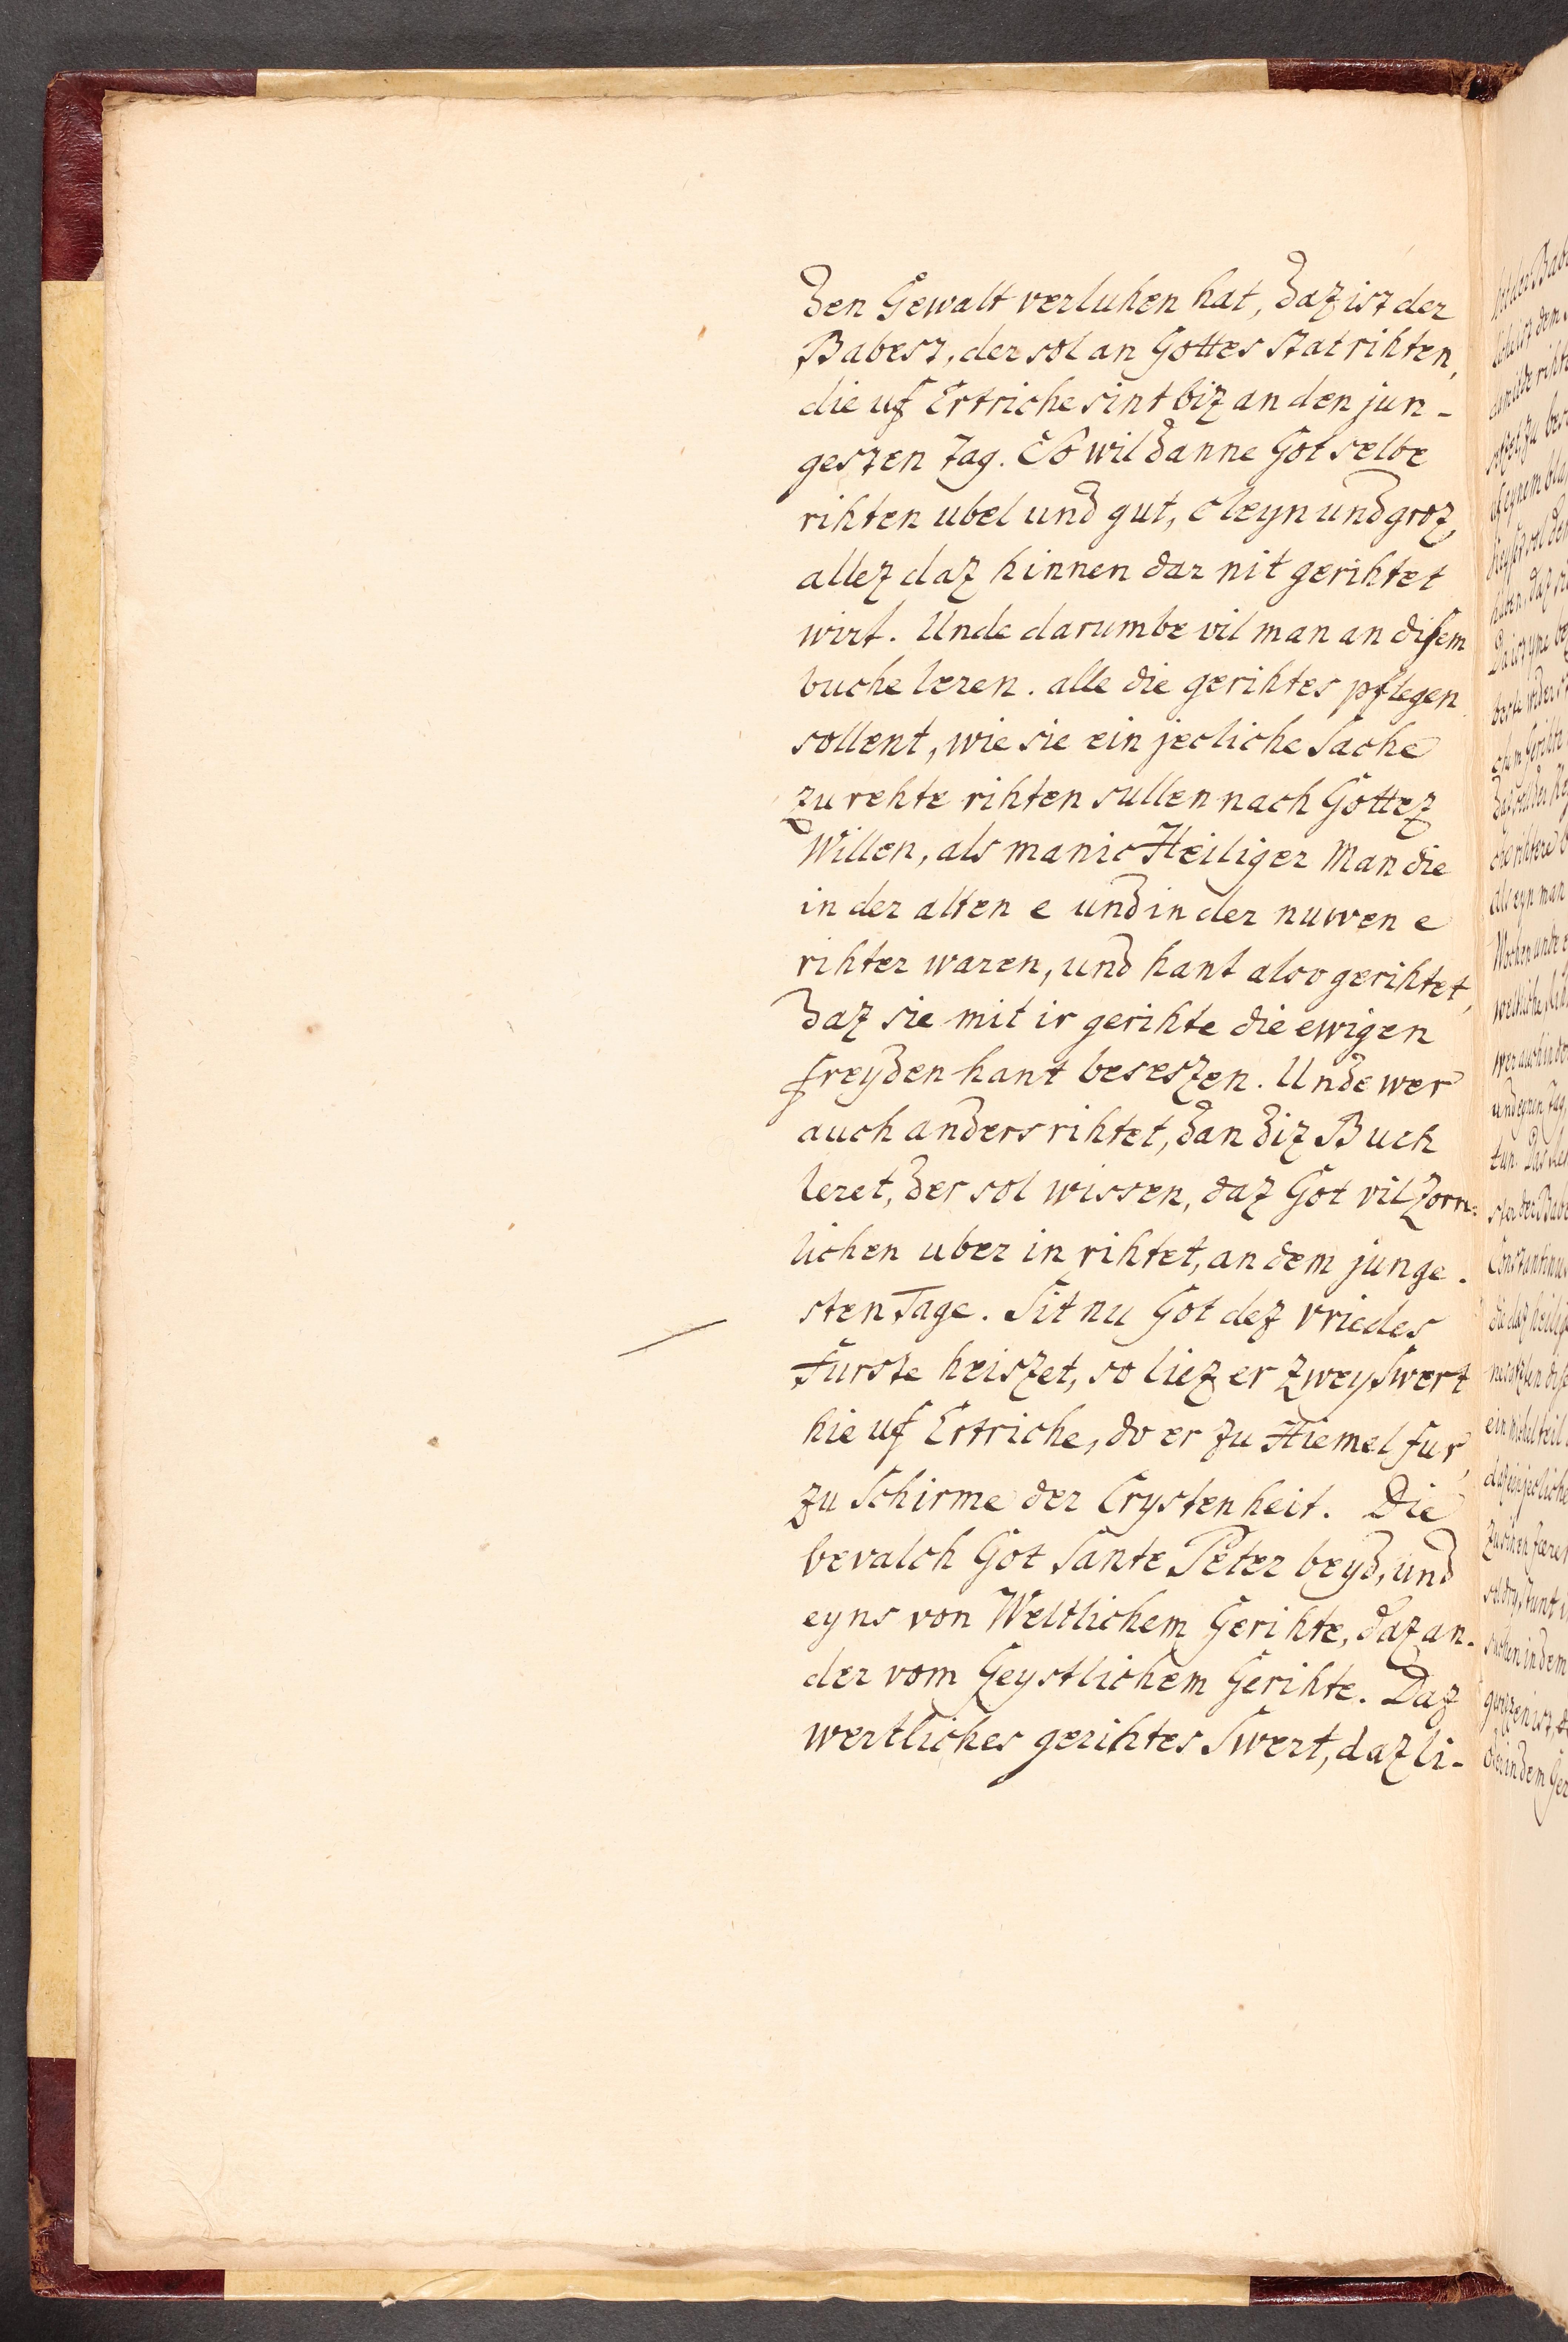 den Gewalt verluhen hat, daz ist der
Babest, der sol an Gottes stat rihten,
die uf Ertriche sint biz an den jun-
gesten tag. So wil danne Got selbe
rihten ubel und gut, cleyn und groz,
allez daz hinnen dar nit gerihtet
wirt. Unde darumbe vil man an disem
buche leren. alle die gerihtes pflegen
sollent, wie sie ein jecliche Sache
zu rehte rihten sullen nach Gottez
Willen, als manic Heiliger Man die
in der alten e und in der nuwen e
rihter waren, und hant alvo gerihtet,
daz sie mit ir gerihte die ewigen
freyden hant beseszen. Unde wer
auch anders rihtet, dan diz Buch
leret, der sol wissen, daz Got vil Zorn=
lichen uber in rihtet, an dem junge-
sten Tage. Sit nu Got dez vriedes
Furste heiszet, so liez er zwey Swert
hie uf Ertriche, do er zu Hiemel fur,
zu Schirme der Crystenheit. Die
bevalch Got Sante Peter beyd, und
eyns von Weltlichem Gerihte, daz an-
der vom Geystlichem Gerihte. Daz
wertliches gerihtes Swert, daz li-